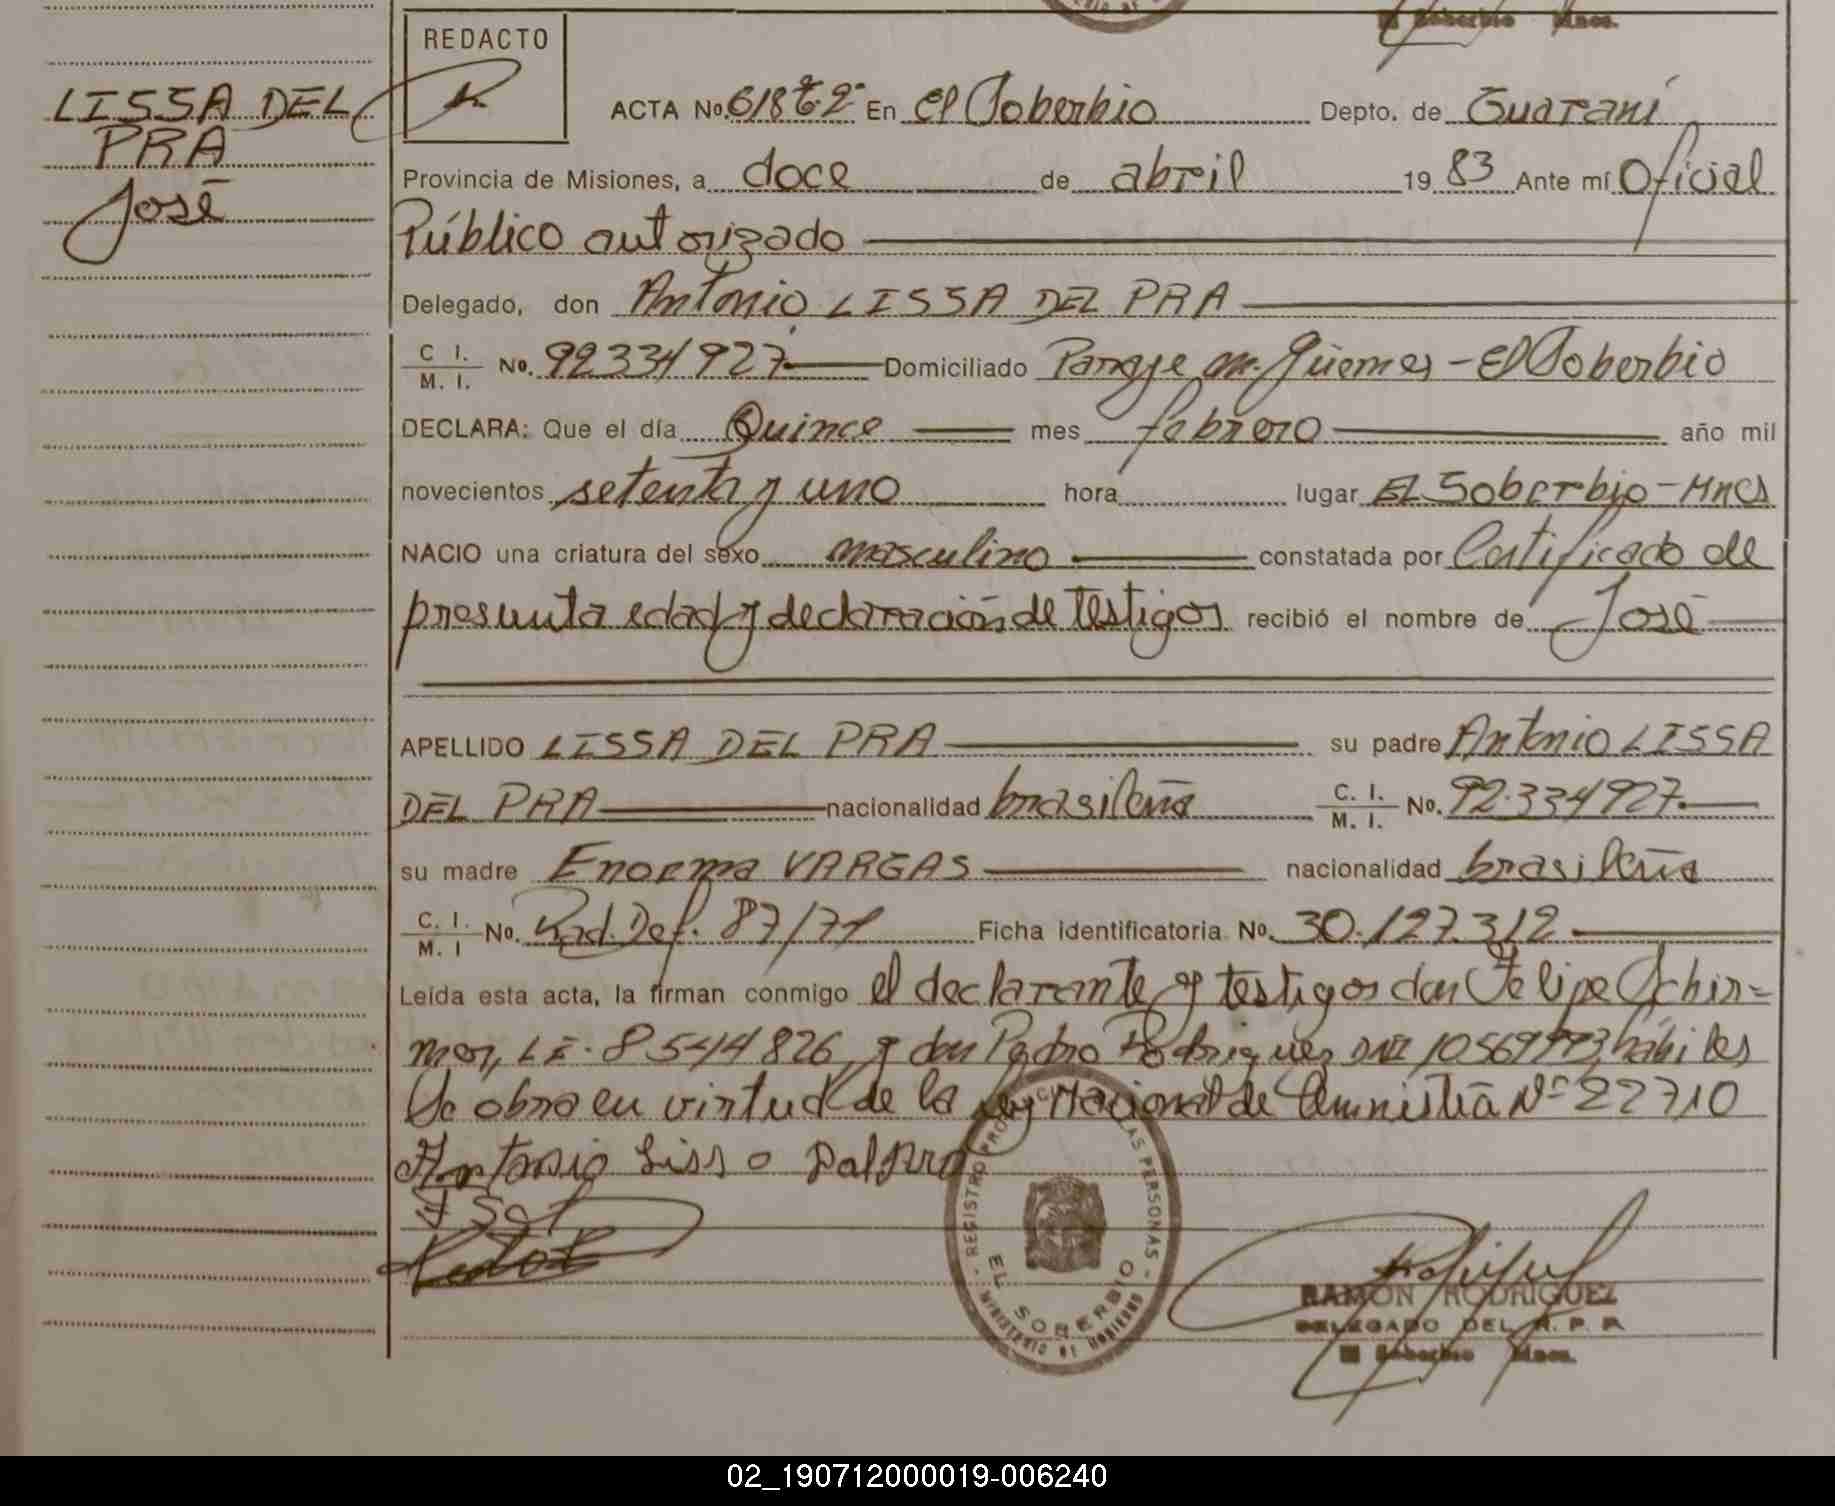 REDACTO
LISSA DEL
PRA
José
ACTA No. 618 tº 2º En El Soberbio Depto. de Guaraní
Provincia de Misiones, a doce de abril 1983 Ante mí Oficial
Público autorizado
Delegado, don Antonio LISSA DEL PRA
C. I. / M. I. No. 92334927 Domiciliado Paraje M. Güemes - El Soberbio
DECLARA: Que el día Quince mes febrero año mil
novecientos setenta y uno hora lugar El Soberbio - Mnes
NACIO una criatura del sexo masculino constatada por Certificado de
presunta edad y declaración de testigos recibió el nombre de José
APELLIDO LISSA DEL PRA su padre Antonio LISSA
DEL PRA nacionalidad brasileña C. I. / M. I. No. 92.334927
su madre Enorma VARGAS nacionalidad brasileña
C. I. / M. I No. Rad. Def. 87/71 Ficha identificatoria No. 30.127.312
Leída esta acta, la firman conmigo el declarante y testigos don Felipe Schir=
mer, LE. 8544826, y don Pedro Rodriguez DNI hábiles
Se obra en virtud de la ley Nacional de Amnistía Nº 22710
Antonio Lisso Dalpra
REGISTRO PROVINCIAL DE LAS PERSONAS
EL SOBERBIO
MINISTERIO DE GOBIERNO
RAMON RODRIGUEZ
DELEGADO DEL R. P. P.
El Soberbio Mnes.
El Soberbio Mnes.
02_190712000019-006240